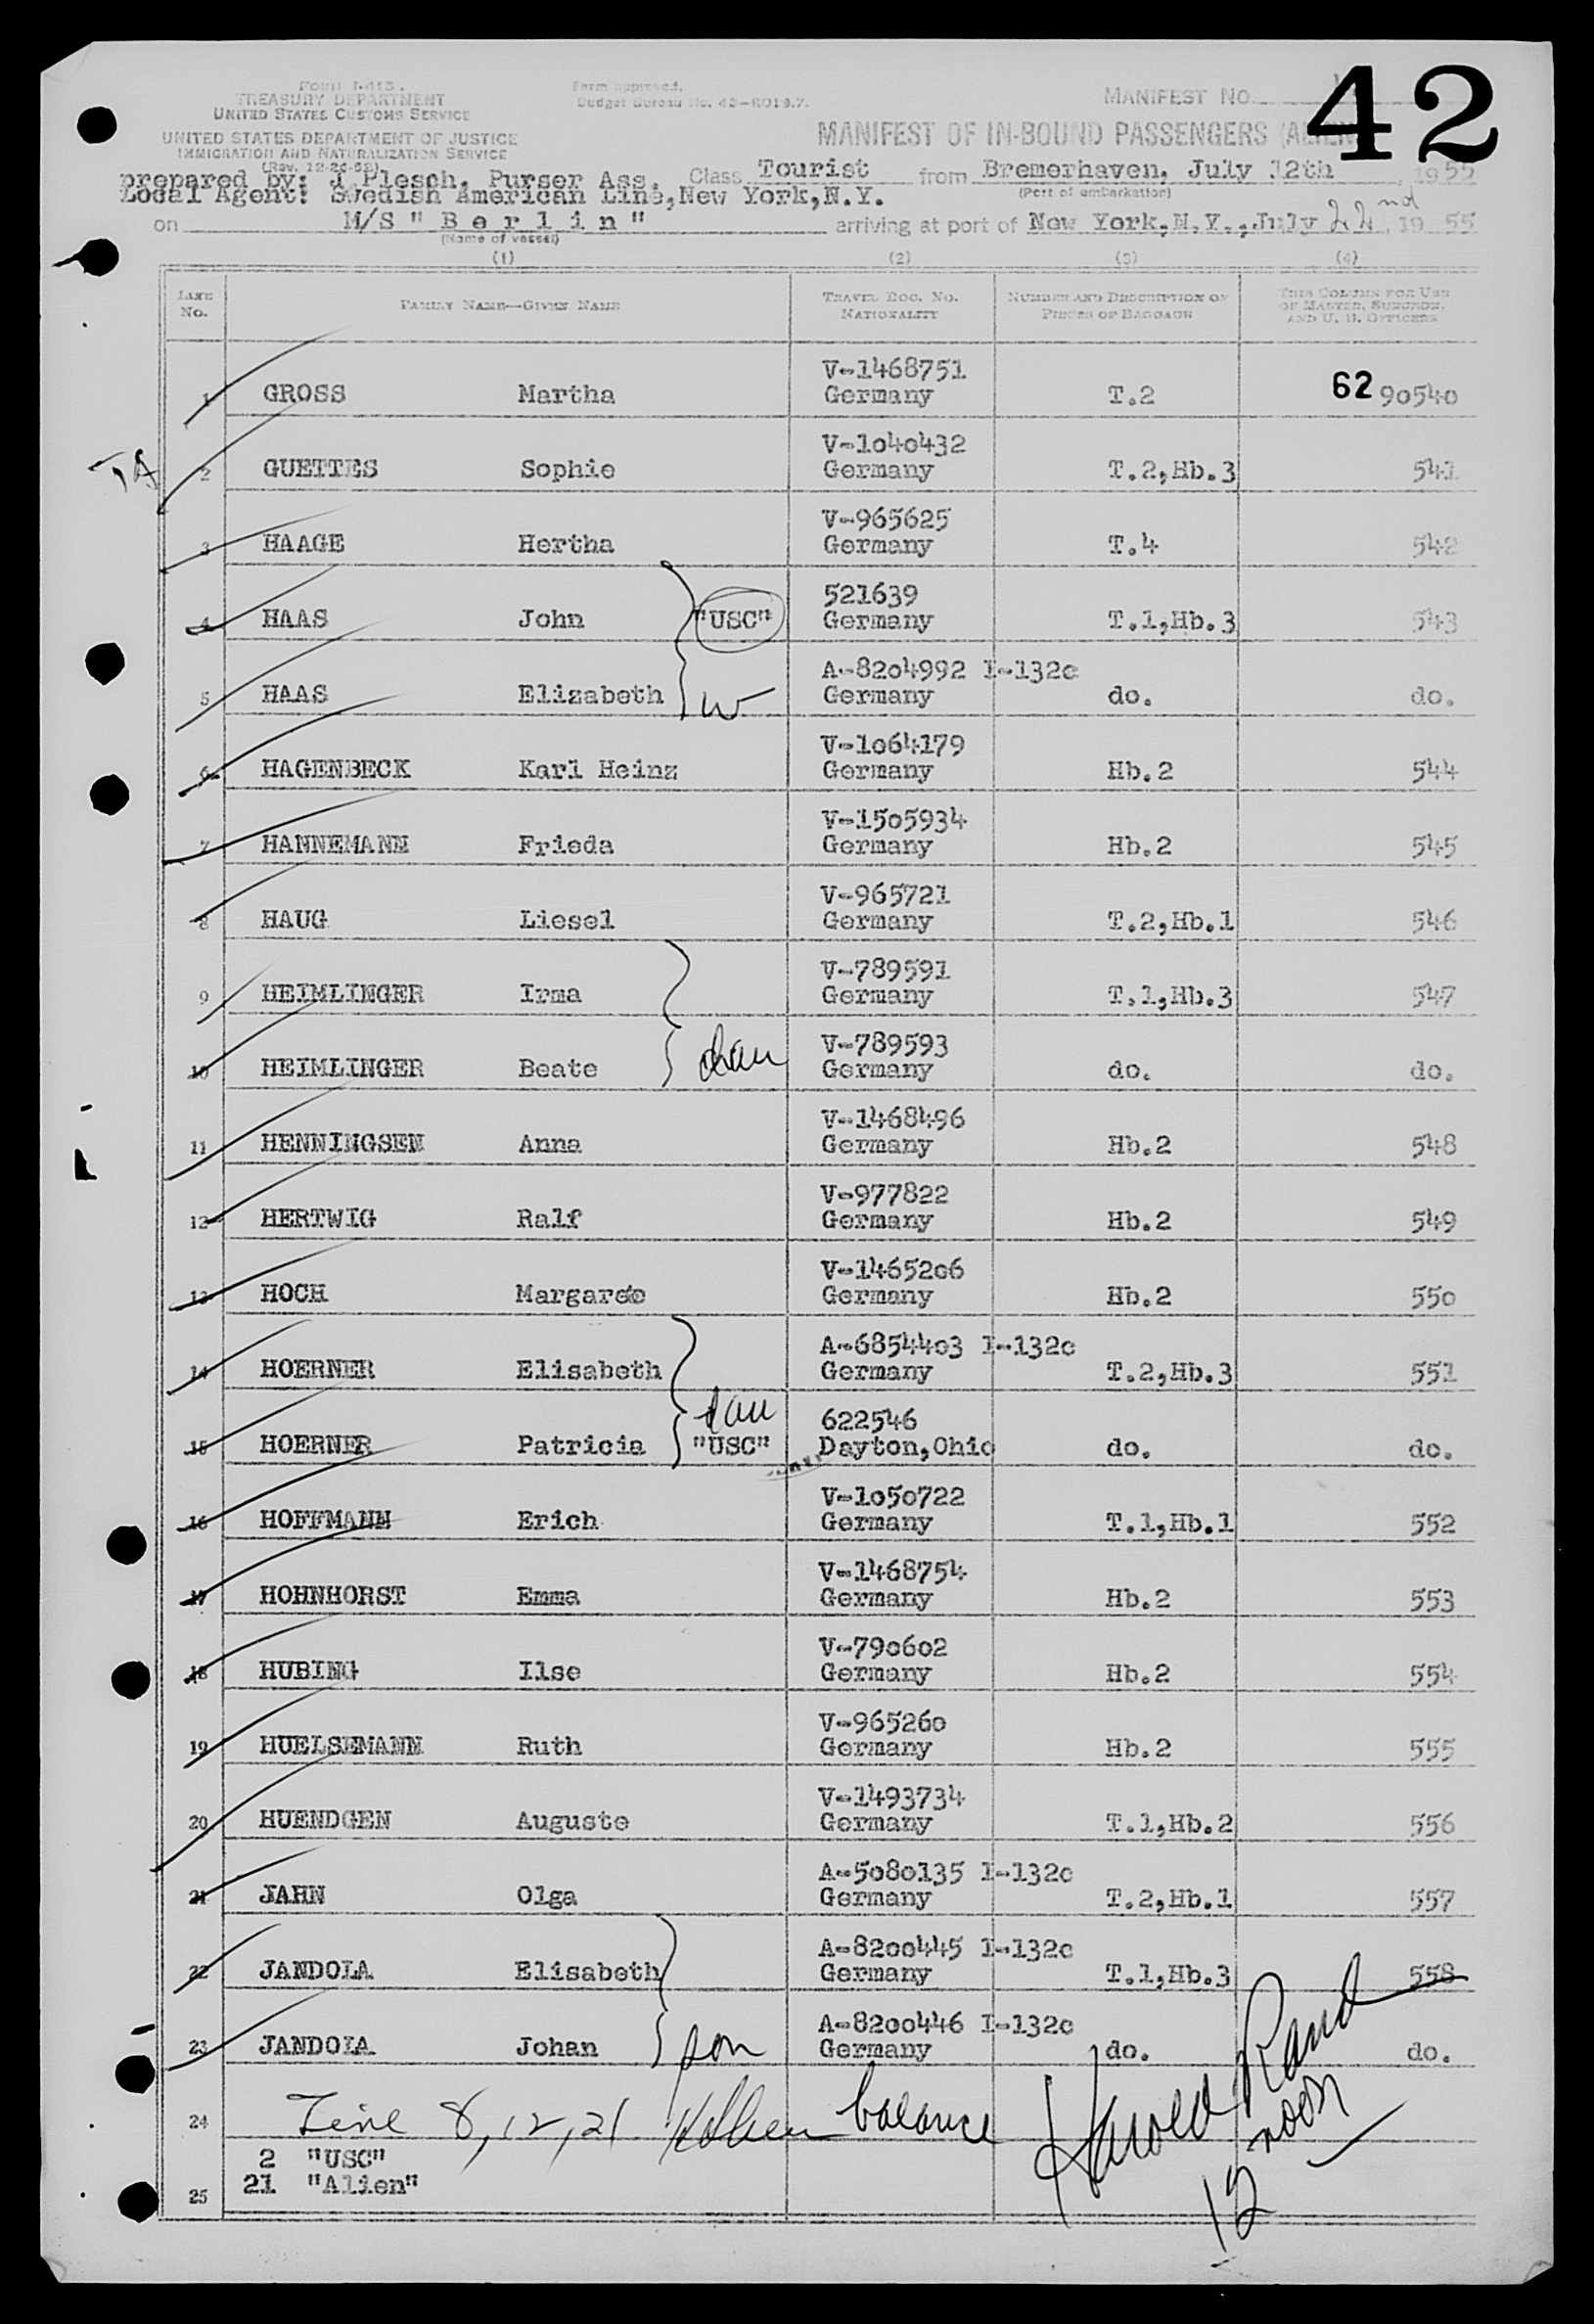 42
FORM I-418
TREASURY DEPARTMENT
UNITED STATES CUSTOMS SERVICE
UNITED STATES DEPARTMENT OF JUSTICE
IMMIGRATION AND NATURALIZATION SERVICE
(Rev. 12-26-52)
Form approved.
Budget Bureau No. 43-R019.7.
MANIFEST NO.
MANIFEST OF IN-BOUND PASSENGERS (ALIEN
prepared by: J Plesch, Purser Ass. Class Tourist from Bremerhaven, July 12th, 1955
Local Agent: Swedish American Line, New York, N.Y. (Port of embarkation)
on M/S "B e r l i n" arriving at port of New York, N.Y., July 22nd, 1955
(Name of vessel)
(1) (2) (3) (4)
LINE No. FAMILY NAME—GIVEN NAME TRAVEL DOC. NO. NATIONALITY NUMBER AND DESCRIPTION OF PIECES OF BAGGAGE THIS COLUMN FOR USE OF MASTER, SURGEON, AND U. S. OFFICERS
V-1468751
1 GROSS Martha Germany T.2 62 90540
V-1040432
TA 2 GUETTES Sophie Germany T.2,Hb.3 541
V-965625
3 HAAGE Hertha Germany T.4 542
521639
4 HAAS John "USC" Germany T.1,Hb.3 543
A-8204992 I-132c
5 HAAS Elizabeth w Germany do. do.
V-1064179
6 HAGENBECK Karl Heinz Germany Hb.2 544
V-1505934
7 HANNEMANN Frieda Germany Hb.2 545
V-965721
8 HAUG Liesel Germany T.2,Hb.1 546
V-789591
9 HEIMLINGER Irma Germany T.1,Hb.3 547
V-789593
10 HEIMLINGER Beate dau Germany do. do.
V-1468496
11 HENNINGSEN Anna Germany Hb.2 548
V-977822
12 HERTWIG Ralf Germany Hb.2 549
V-1465206
13 HOCH Germany Hb.2 550
A-6854403 I-132c
14 HOERNER Elisabeth Germany T.2,Hb.3 551
dau 622546
15 HOERNER Patricia "USC" Dayton,Ohio do. do.
V-1050722
16 HOFFMANN Erich Germany T.1,Hb.1 552
V-1468754
17 HOHNHORST Emma Germany Hb.2 553
V-790602
18 HUBING Ilse Germany Hb.2 554
V-965260
19 HUELSEMANN Ruth Germany Hb.2 555
V-1493734
20 HUENDGEN Auguste Germany T.1,Hb.2 556
A-5080135 I-132c
21 JAHN Olga Germany T.2,Hb.1 557
A-8200445 I-132c
22 JANDOLA Elisabeth Germany T.1,Hb.3 558
A-8200446 I-132c
23 JANDOLA Johan son Germany do. do.
24 Line 8, 12, 21 balance Harold Rand
12 noon
2 "USC"
25 21 "Alien"